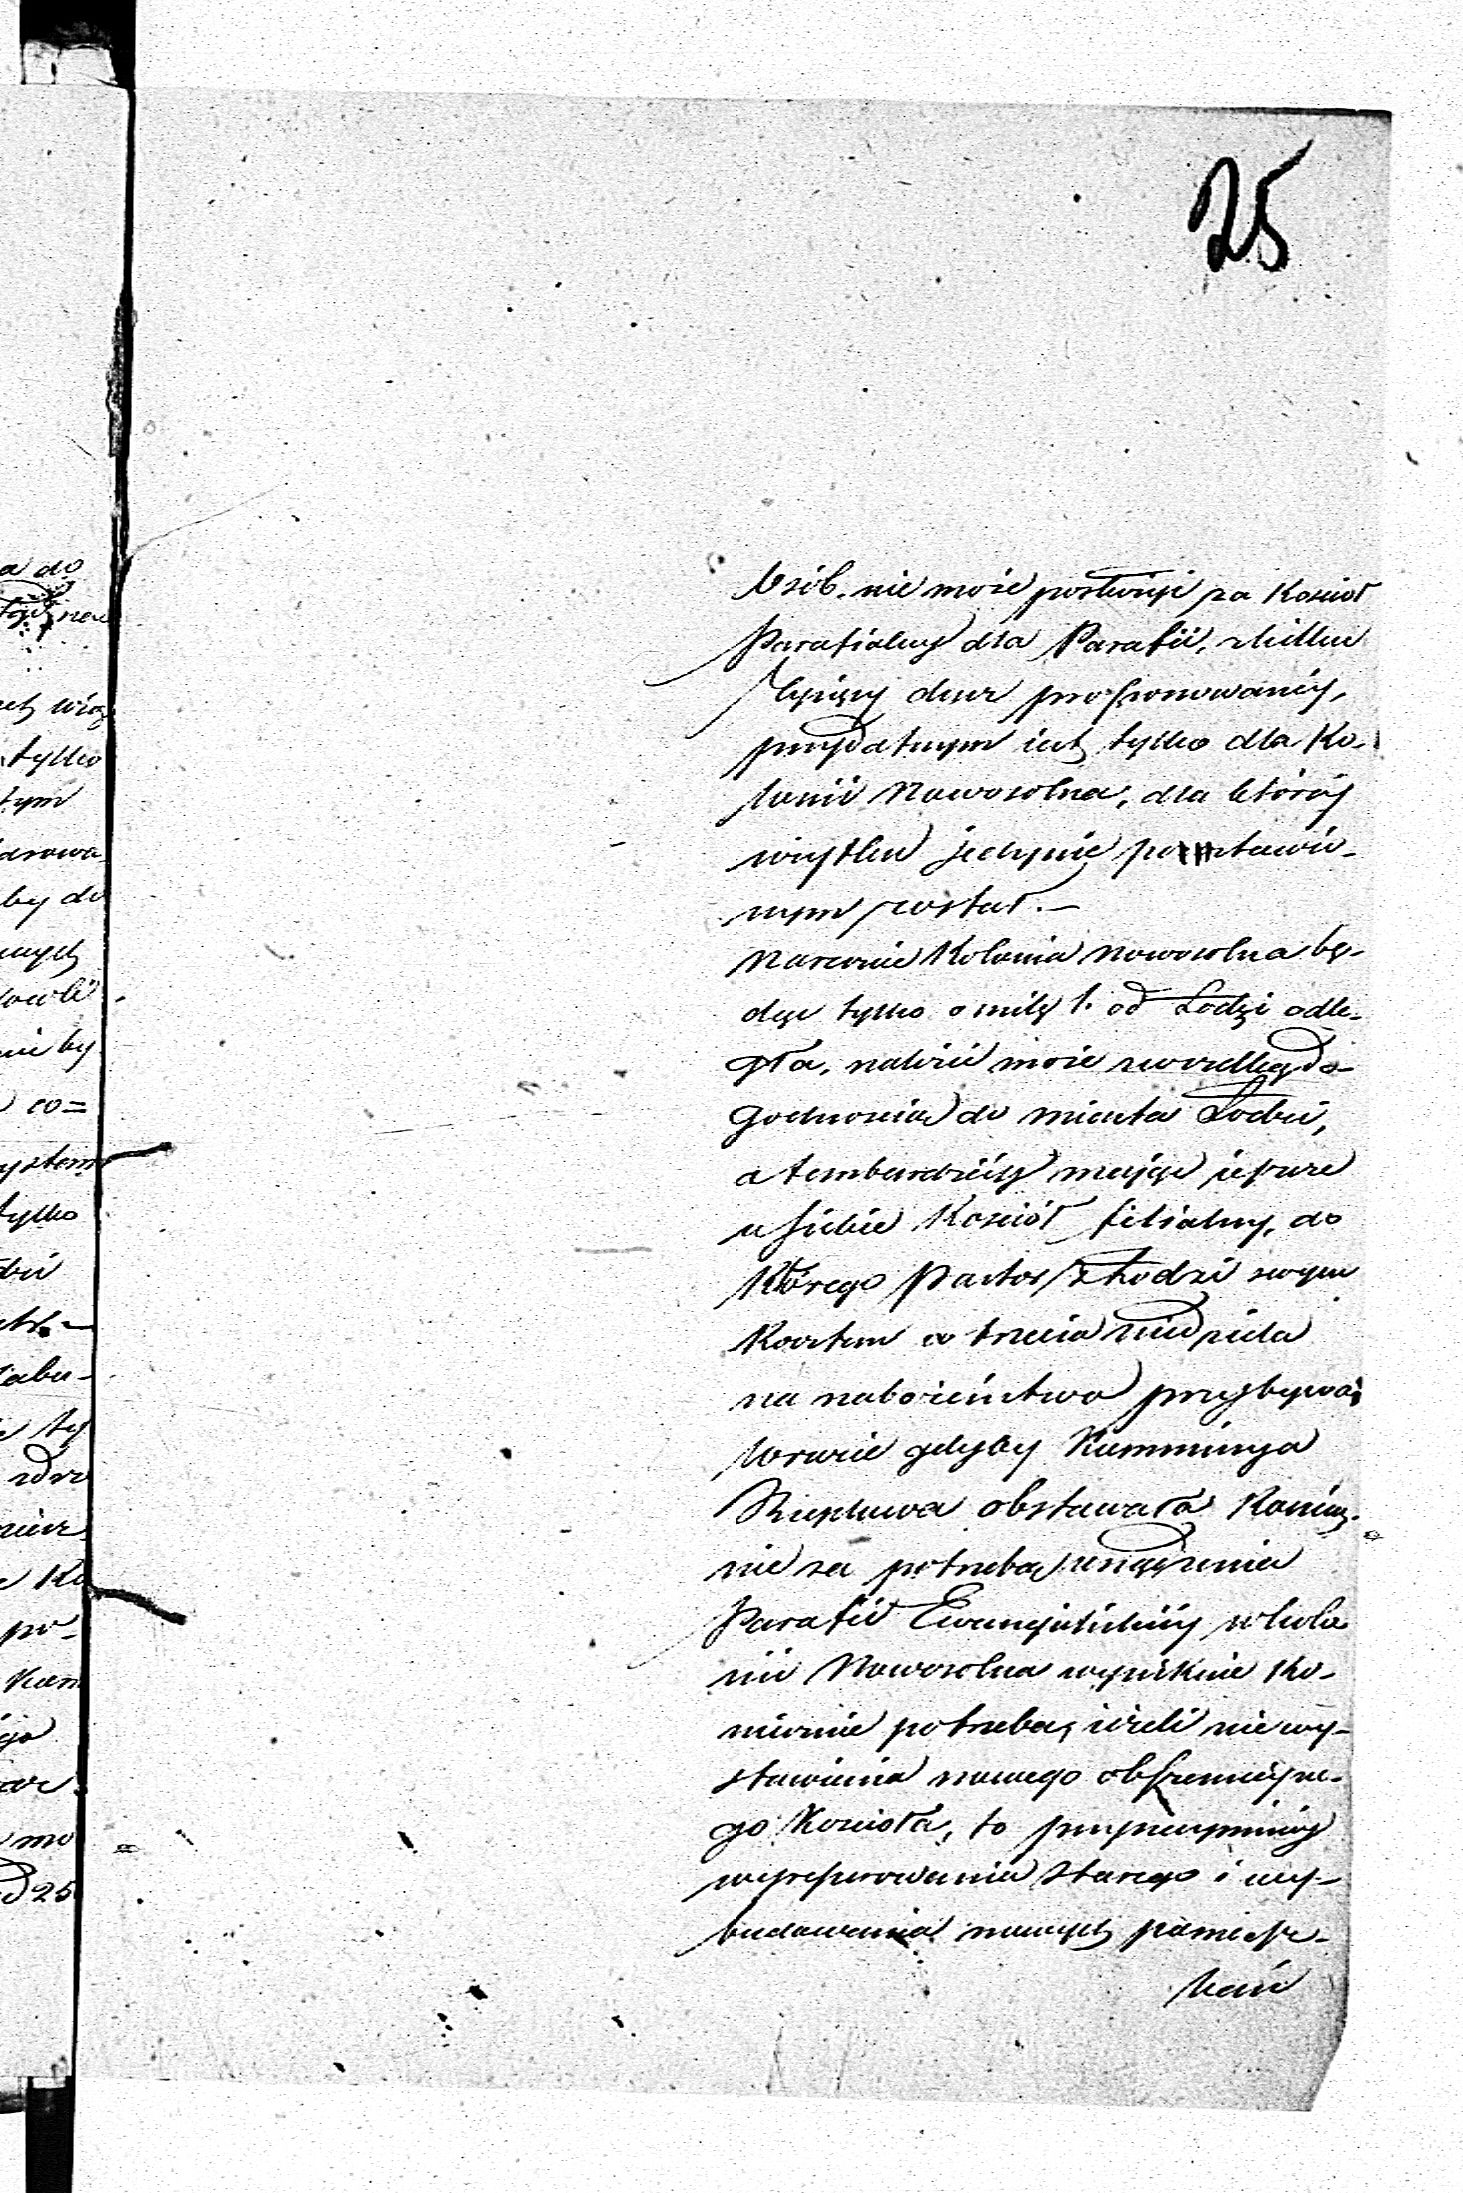 25
Osób. nie może posłużyć za Koscioł
Parafialny dla Parafii, z kilku
tysięcy dusz proponowanéy,
przydatnym iest tylko dla Ko-
lonii Nowosolna, dla któréy
wzystku jedynie postawio-
nym został.—
Nareznie Kolonia Nowosolna bę-
dąc tylko o milę 1. od Łodzi odle-
gła, należeć może z wszelką do-
godnoscią do miasta Łodzi,
a tembardziéy mając ieszcze
u siebie Kosciół filialny, do
Którego Pastor z Łodzi swym
Kosztem co trzecia niedziela
na nabożeństwo przybywa;
Wrazie gdyby Kommissya
Rządowa obstawała Koniecz-
nie za potrzebą urządzenia
Parafii Ewangielickiéy w kolo
nii Nowosolna wyniknie Ko-
niecznie potrzeba, iżeli nie wy-
stawienia nowego obszernieysze-
go Koscioła, to przynaymniéy
wyreperowania starego i wy-
budowania nowych pomiesz-
kań
a do
tylko
tym
by do
nie by
co=
system
tylko
po-
Kom
mo
d 25